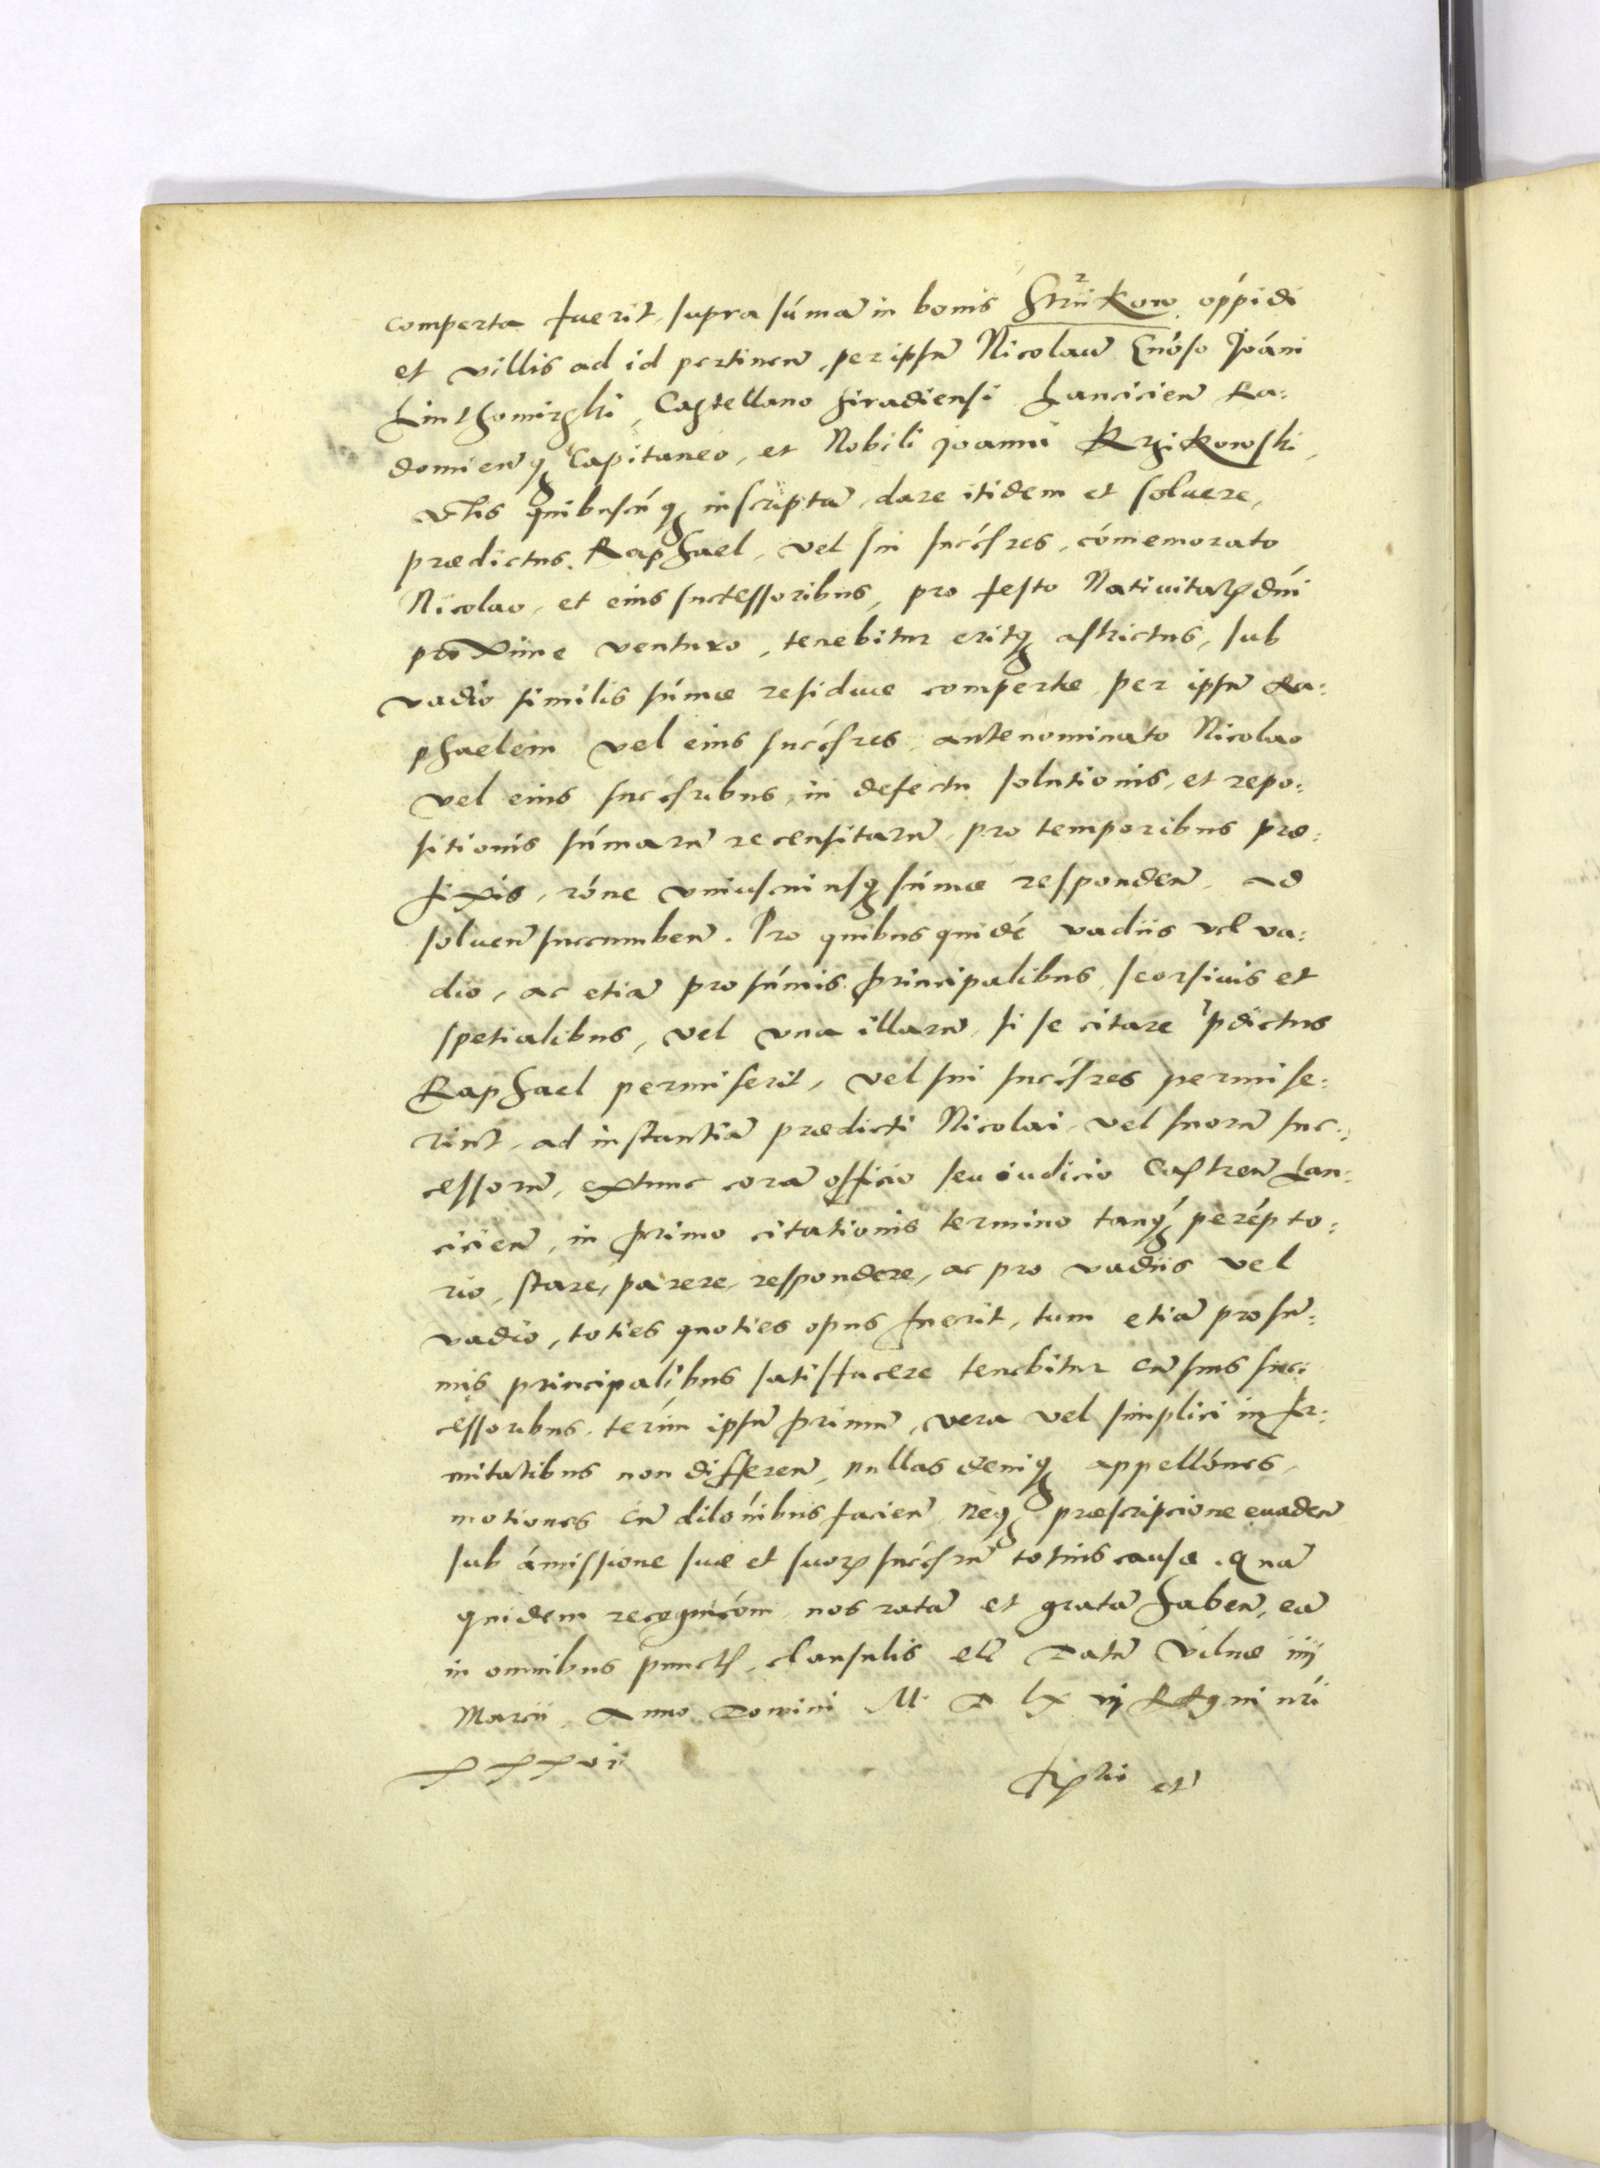 comperta fuerit, supra súmã in bonis Strikow oppidi
et villis ad id pertineñ, per ipsũ Nicolaũ Gnóso Joáni
Luthomirski, Castellano Siradiensi Lancicień Ra:
domieñq Capitaneo, et Nobili Joanni Krzikowski,
vel aliis quibuscúq inscriptã, dare itidem et soluere,
prædictus Raphael, vel sui succésres, cómemorato
Nicolao, et eius successoribus, pro festo Nativitatis dńi
proxime venturo, tenebitur eritq astrictus, sub
vadio similis súmæ residuæ compertæ per ipsũ Ra:
phaelem vel eius succésres, antenominato Nicolao
vel eius succésribus, in defectu solutionis, et repo:
sitionis súmarũ recensitarũ, pro temporibus præ:
fixis, róne vniuscuiusq súmæ respondeñ, ad
solueñ succumbeñ. Pro quibus quidé vadiis vel va:
dio, ac etiã pro súmis principalibus, seorsivis et
spetialibus, vel vna illarũ, si se citare p̃dictus
Raphael permiserit, vel sui succésres permise:
rint, ad instantiã prædicti Nicolai, vel suorũ suc:
cessorũ, extunc corã officio seu iudicio Castreñ Lan:
cicieñ, in primo citationis termino tanq́ perépto:
rio, stare, parere, respondere, ac pro vadiis vel
vadio, toties quoties opus fuerit, tum etiã pro sũ:
mis principalibus satisfacere tenebitur cũ suis suc:
cessoribus, termı́ ipsũ primũ, vera vel simplici infir:
mitatibus non differeñ, nullas deniq appellónes,
motiones cũ dilónibus facieñ, neq præscripcione euadeñ
sub ámissione suæ et suorum succésrũ totius causæ. Quã
quidem recognicóm nos ratã et gratã habeñ, eã
in omnibus punctis, clausulis etc Datũ Vilnæ iiij
Marcii, Anno Domini M D lx iij Regni nrí
xxxvi